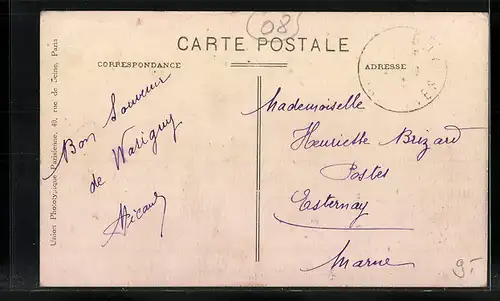 08
CARTE POSTALE
CORRESPONDANCE
ADRESSE
Bon Souvenir
de Warigny
Mademoiselle
Henriette Brizard
Postes
Esternay
Marne
Union Phototypique Parisienne, 49, rue de Seine, Paris
9.-